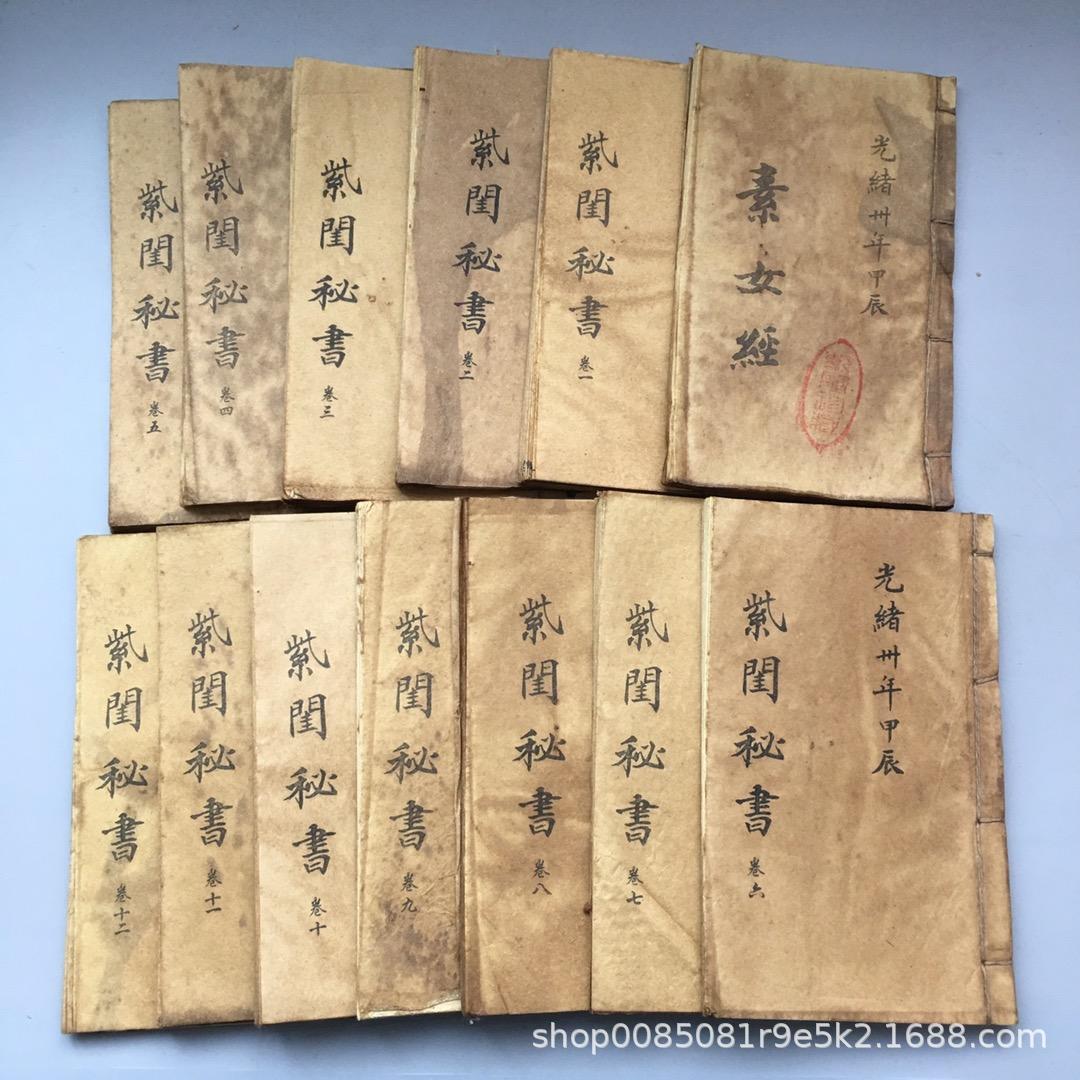 光緒卅年甲辰
素女經
紫閨秘書
卷一
紫閨秘書
卷二
紫閨秘書
卷三
紫閨秘書
卷四
紫閨秘書
卷五
光緒卅年甲辰
紫閨秘書
卷六
紫閨秘書
卷七
紫閨秘書
卷八
紫閨秘書
卷九
紫閨秘書
卷十
紫閨秘書
卷十一
紫閨秘書
卷十二
shop0085081r9e5k2.1688.com